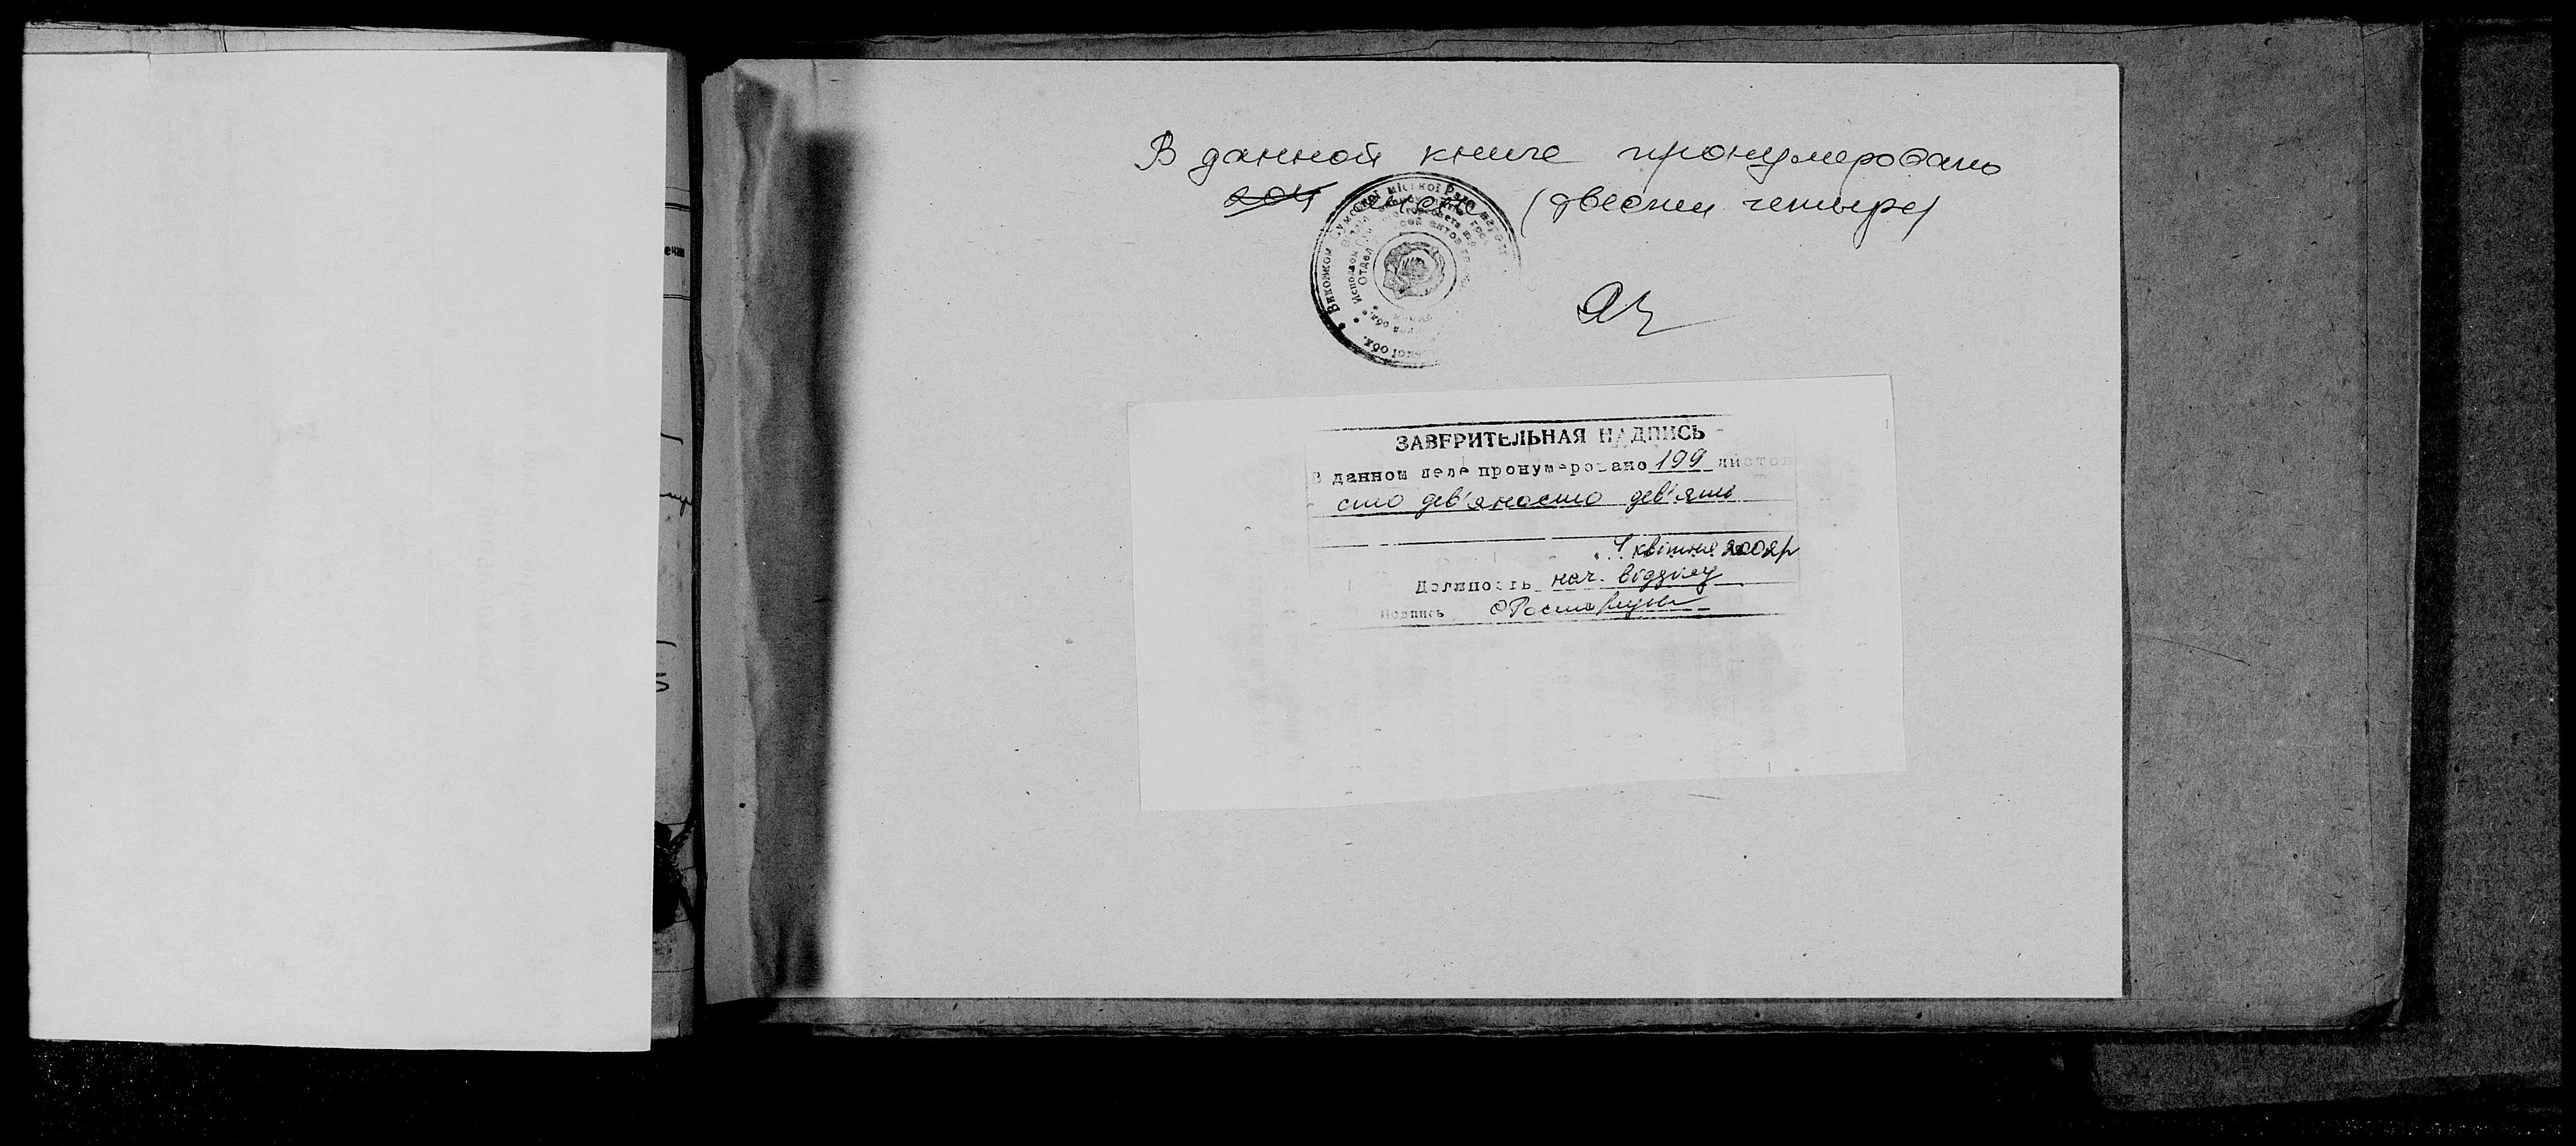 В данной книге пронумеровано
204 листа (двести четыре)
Виконком Сумської міської Ради народн
ської обл.
ЗАВЕРИТЕЛЬНАЯ НАДПИСЬ
В данном деле пронумеровано 199 листов
сто дев'яносто дев'ять
4 квітня 2002р
Должность нач. відділу
Подпись
ечан